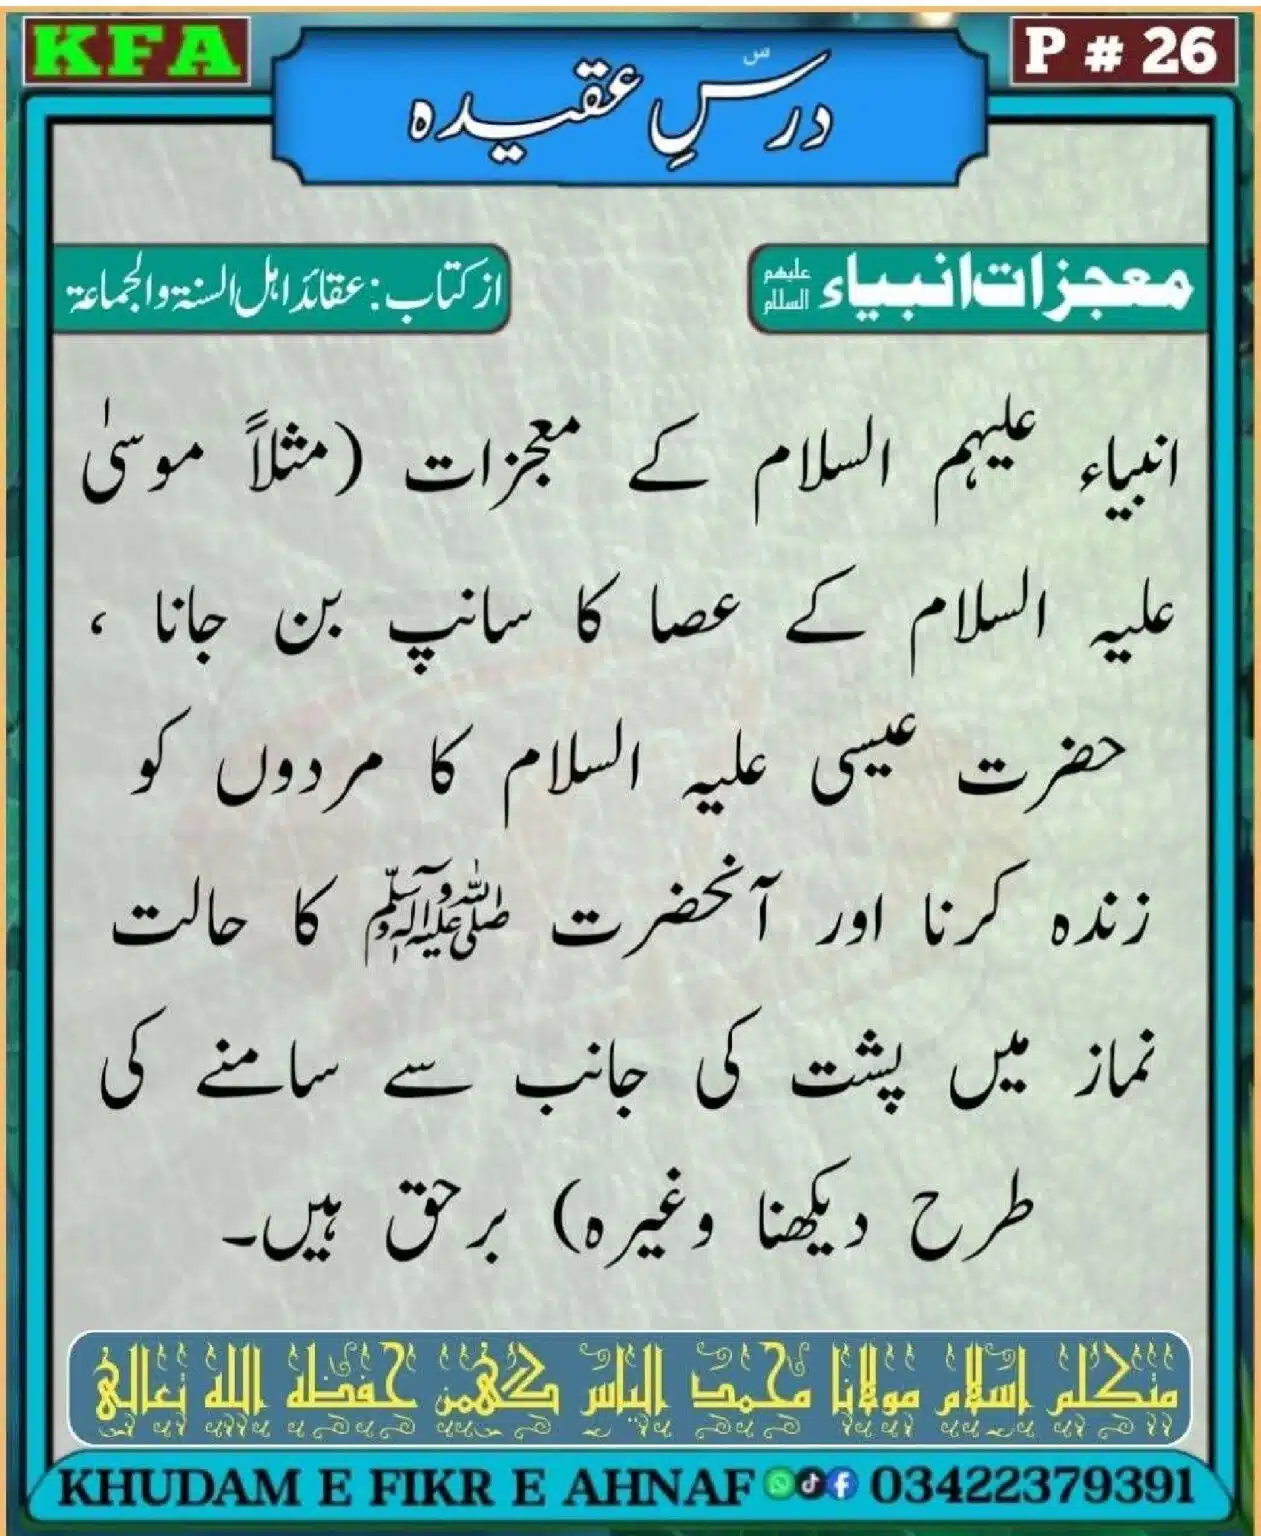 KFA
درسِ عقیدہ
P # 26
معجزات انبیاء علیهم السلام
از کتاب: عقائد اہل السنۃ والجماعۃ
انبیاء علیہم السلام کے معجزات (مثلاً موسیٰ
علیہ السلام کے عصا کا سانپ بن جانا ،
حضرت عیسی علیہ السلام کا مردوں کو
زندہ کرنا اور آنحضرت ﷺ کا حالت
نماز میں پشت کی جانب سے سامنے کی
طرح دیکھنا وغیرہ) برحق ہیں۔
متکلم اسلام مولانا محمد الیاس گھمن حفظہ اللہ تعالیٰ
KHUDAM E FIKR E AHNAF 03422379391